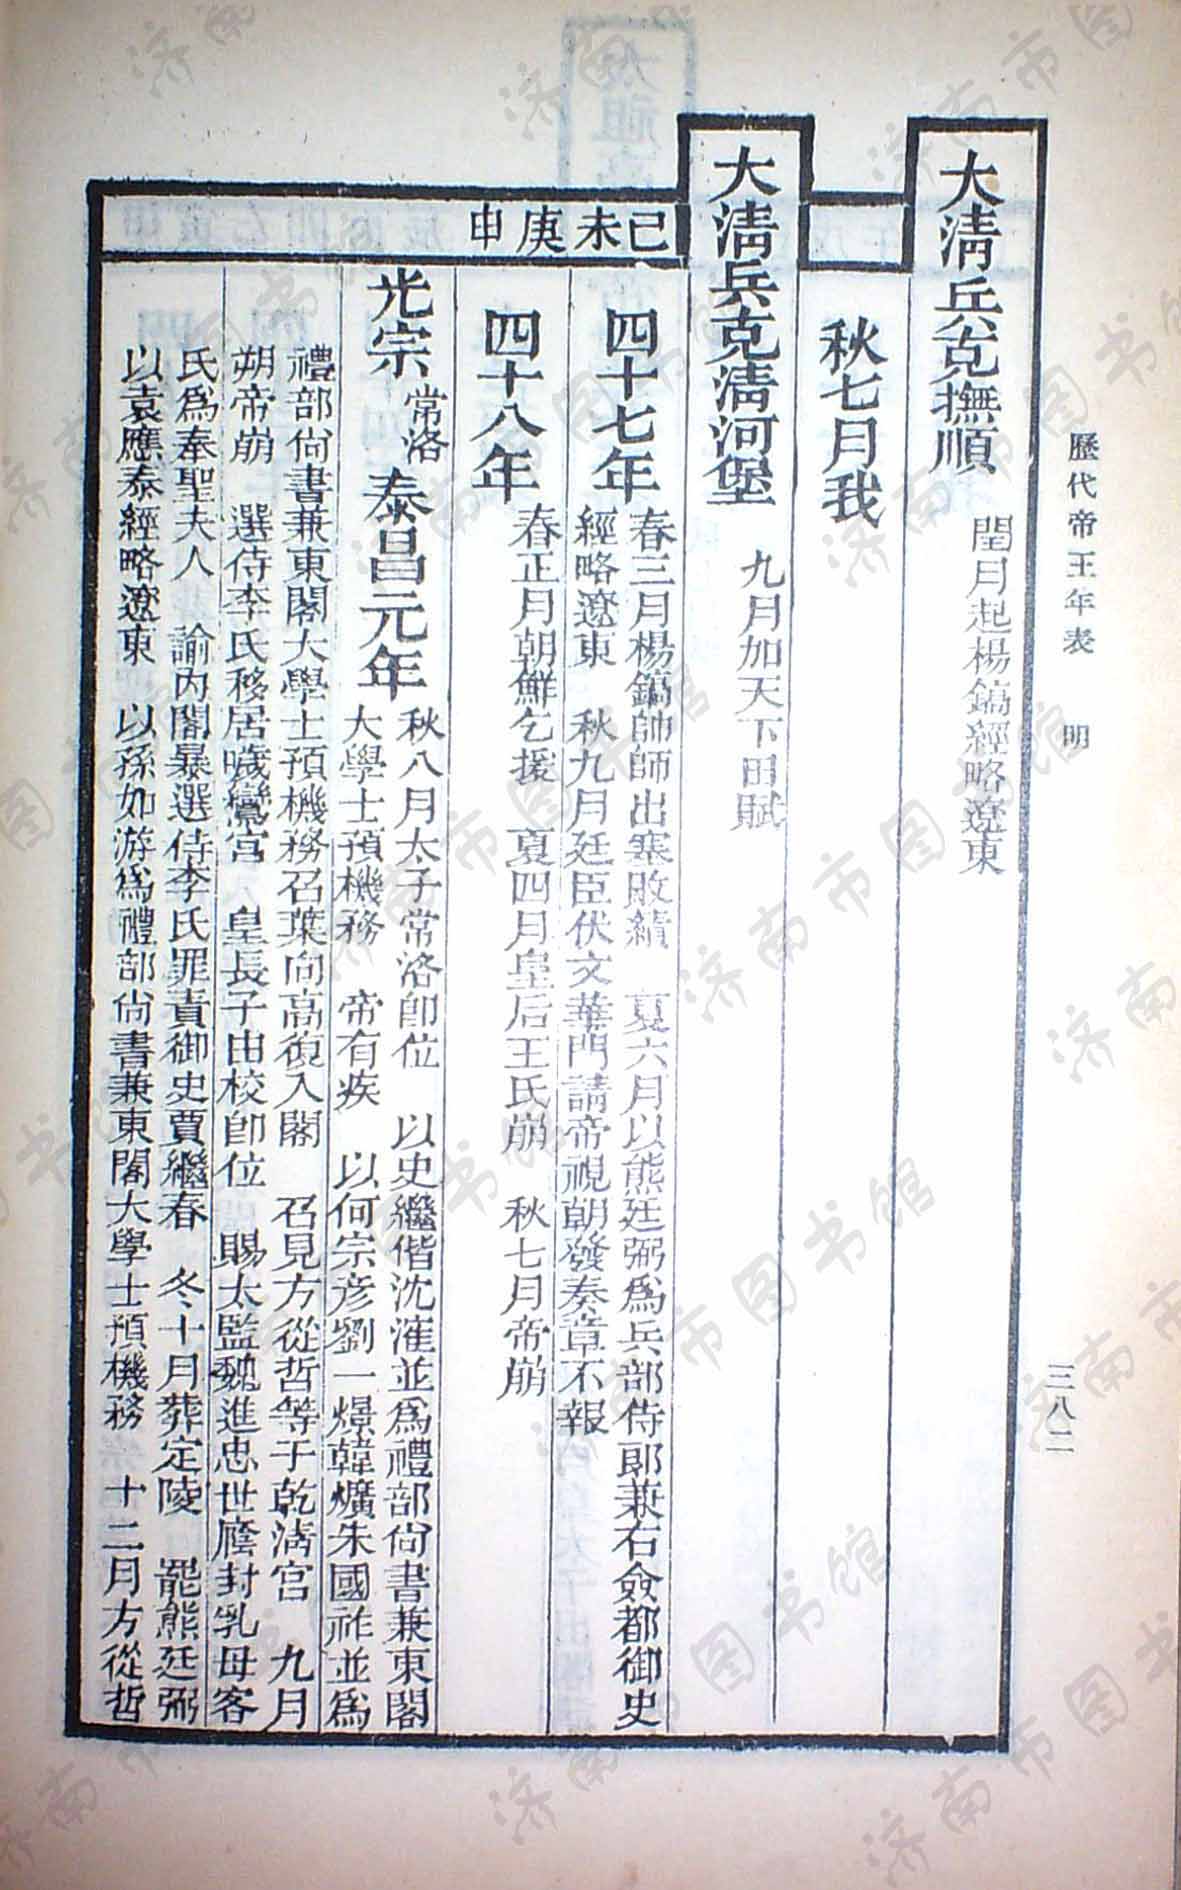 歷代帝王年表　明
三八二
大淸兵克撫順　閏月起楊鎬經略遼東
秋七月我
大淸兵克淸河堡　九月加天下田賦
己未
四十七年　春三月楊鎬帥師出塞敗績　夏六月以熊廷弼爲兵部侍郞兼右僉都御史
經略遼東　秋九月廷臣伏文華門請帝視朝發奏章不報
庚申
四十八年　春正月朝鮮乞援　夏四月皇后王氏崩　秋七月帝崩
光宗常洛　泰昌元年　秋八月太子常洛卽位　以史繼偕沈㴶並爲禮部尙書兼東閣
大學士預機務　帝有疾　以何宗彥劉一燝韓爌朱國祚並爲
禮部尙書兼東閣大學士預機務召葉向高復入閣　召見方從哲等于乾淸宮　九月
朔帝崩　選侍李氏移居噦鸞宮　皇長子由校卽位　賜太監魏進忠世廕封乳母客
氏爲奉聖夫人　諭內閣暴選侍李氏罪責御史賈繼春　冬十月葬定陵　罷熊廷弼
以袁應泰經略遼東　以孫如游爲禮部尙書兼東閣大學士預機務　十二月方從哲
济南市图书馆